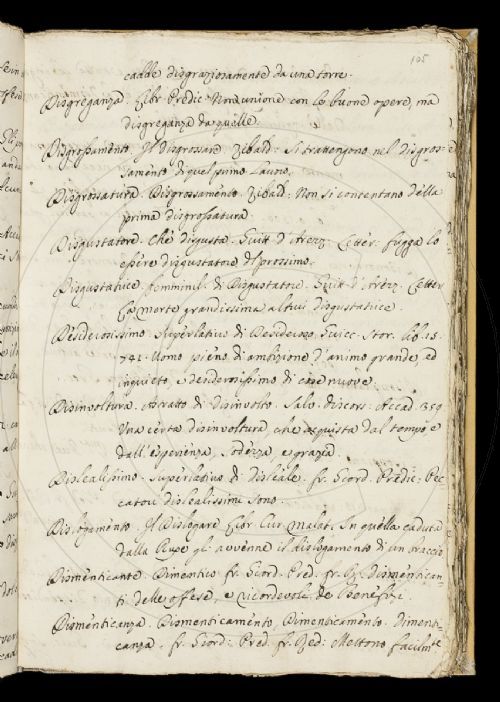 105
cadde disgraziosamente da una torre.
Disgreganza. Libr. Predic. Non è unione con le buone opere, ma
disgreganza da quelle.
Disgrossamento. Il disgrossare. Zibald: Si trattengono nel disgros-
samento di quel primo lavoro.
Disgrossatura. Disgrossamento. Zibald: Non si contentano della
prima disgrossatura.
Disgustatore. Che disgusta. Guitt. d'Arezz. Letter. fugga lo
essere disgustatore del prossimo.
Disgustatrice. femminil. di Disgustatore. Guitt. d'Arezz. Letter.
La morte grandissima altrui disgustatrice.
Desiderosissimo. Superlativo di Desideroso. Guicc. Stor. lib. 15.
741. Uomo pieno di ambizione d'animo grande, ed
inquieto, e desiderosissimo di cose nuove.
Disinvoltura. Astratto di disinvolto. Salv. Discors. Accad. 359.
Una certa disinvoltura, che acquista dal tempo e
dall'esperienza, sodezza e grazia.
Dislealissimo. Superlativo di disleale. fr. Giord. Predic. Pec-
catori dislealissimi sono.
Dislogamento. Il Dislogare. Libr. Cur. malat. In quella caduta
dalla Rupe gli avvenne il dislogamento di un braccio.
Dismenticante. Dimentico. fr. Giord. Pred. fr. R. dismentican-
ti delle offese, e ricordevoli de' benefizi.
Dismenticanza. Dismenticamento, Dimenticamento. Dimenti-
canza. fr. Giord: Pred. fr. Red: Mettono facilm.te